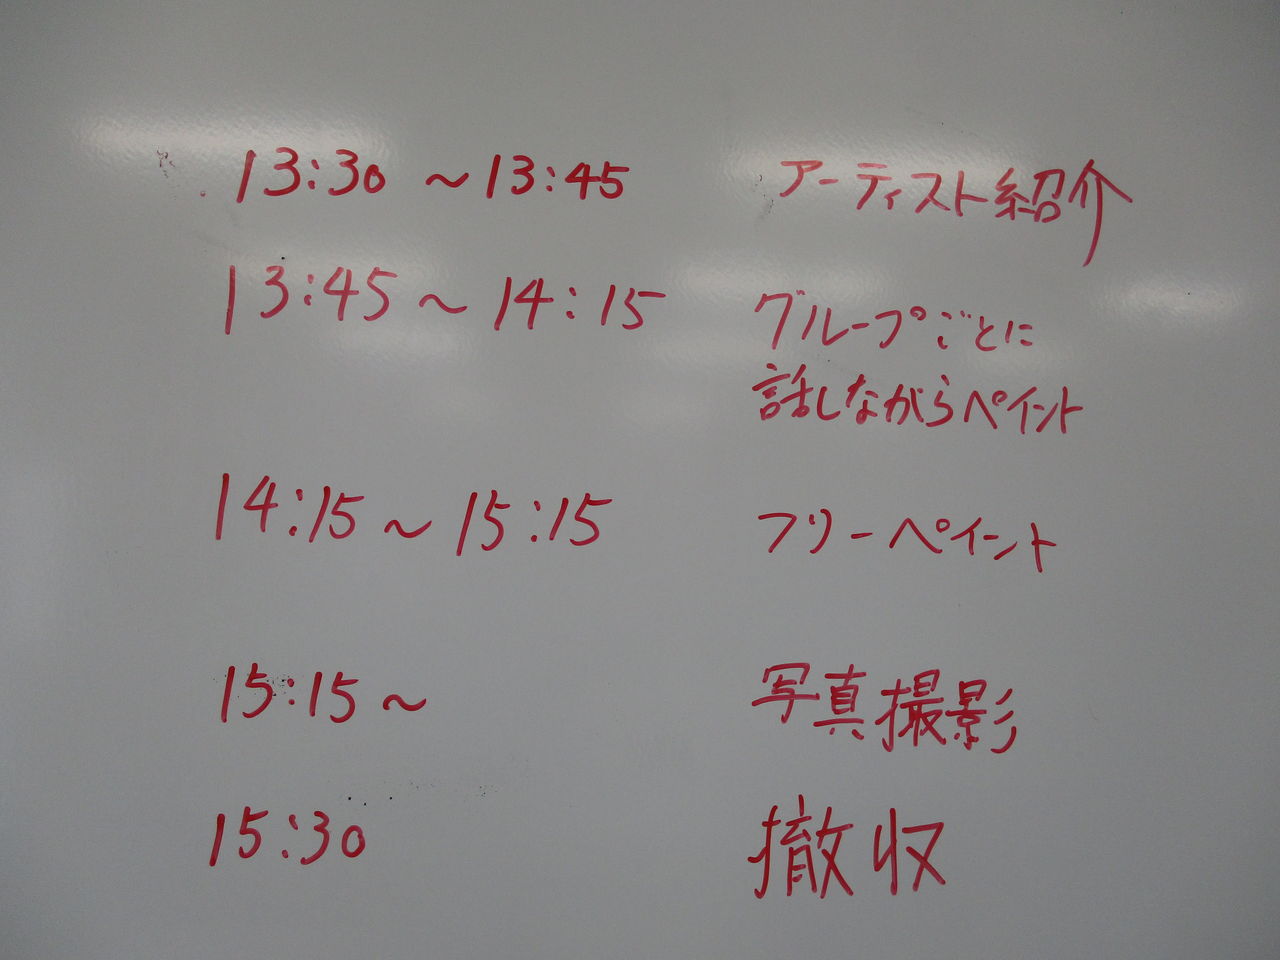 13:30 ~13:45 アーティスト紹介
13:45 ~ 14:15 グループごとに
話しながらペイント
14:15 ~ 15:15 フリーペイント
15:15 ~ 写真撮影
15:30 撤収